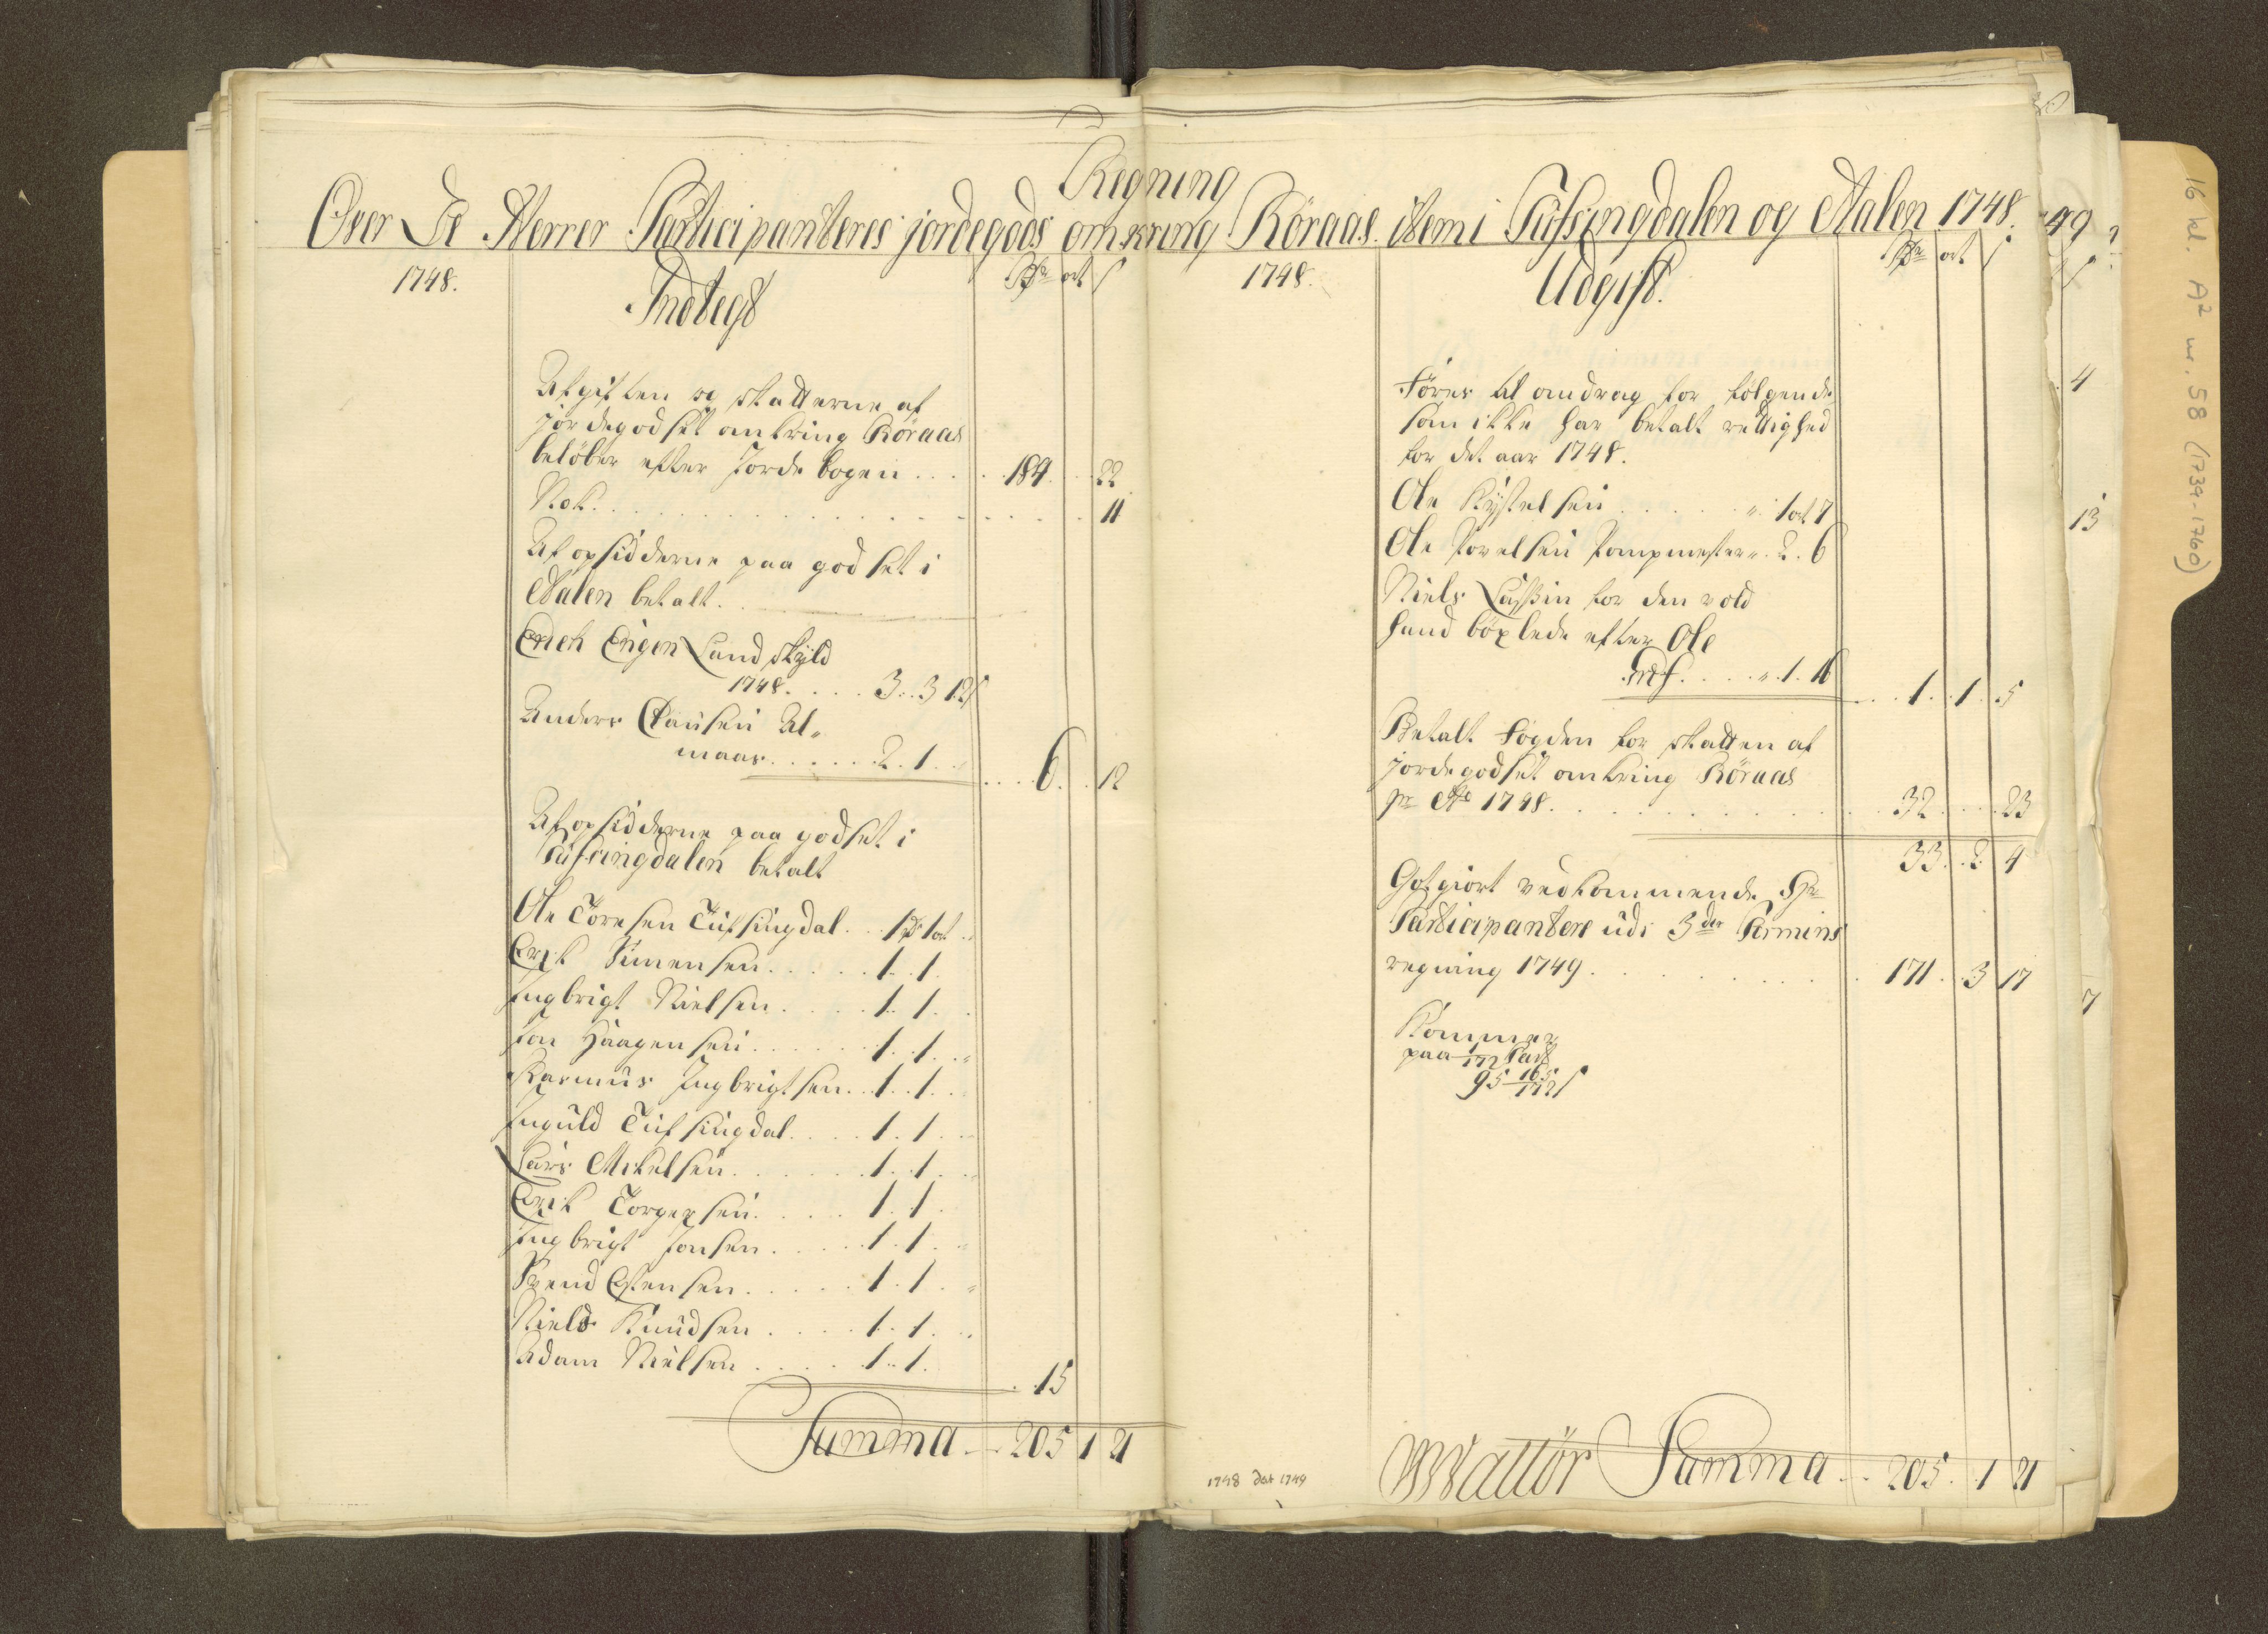 Regning
Over De Herrer Participanteres jordegods omkring Röraas item i Tüfsingdalen og Aalen 1748.
1748.
Indtegt
Rdr ort s
Afgiften og skatterne af
jordegodset omkring Röraas
belöber efter Jordebogen . . . . 184 . . 22
Nok . . . . . . . . 11
Af opsidderne paa godset i
Aalen betalt .
Erich Engen Landskyld
1748. . . . . 3. 3 12 s
Anders Clausen Al„
maas . . . . . . 2. 1 . .
. . . 6 . . 12
Af opsidderne paa godset i
Tüfsingdalen betalt
Ole Toresen Tüfsingdal . . 1 rdr 1 ort ..
Erik Simensen . . . . . 1. 1.
Ingbrigt Nielsen . . . . 1. 1. .
Jon Haagensen . . . . . . 1. 1. ..
Rasmus Ingbrigtsen . . 1. 1. .
Inguld Tüfsingdal . . . . 1. 1. ..
Lars Mikelsen . . . . . . 1. 1. ..
Erik Torgersen . . . . . 1. 1.
Ingbrigt Jonsen . . . . . 1. 1. ..
Svend Estensen . . . . . 1. 1. .
Niels Knudsen . . . . 1. 1. ..
Adam Nielsen . . . . . 1. 1.
. . 15
Summa — 205 1 21
1748.
Udgift.
Rdr ort s
Föres til andrag for fölgende
som ikke har betalt rettighed
for det aar 1748.
Ole Kystelsen . . . . . „ 1 ort 7
Ole Povelsen Pompmester „ . 2. 6
Niels Lussin for den vold
hand böxlede efter Ole
. . . . „ . 1. 16
. . 1. 1. 5
Betalt Fogden for skatten af
jordegodset omkring Röraas
pr Ao 1748. . . . . . . . 32 . . . 23
33. . 2 4
Gotgiort vedkommende Hr
Participantere udi 3der Termins
regning 1749 . . . . . . . 171. . 3 17
Kommer
paa 1/172 Part
95 165/172 s
WWattör
Summa — 205. 1 21
1748 dat 1749
49
4
13
7
16 kl. A² nr. 58 (1734-1760)